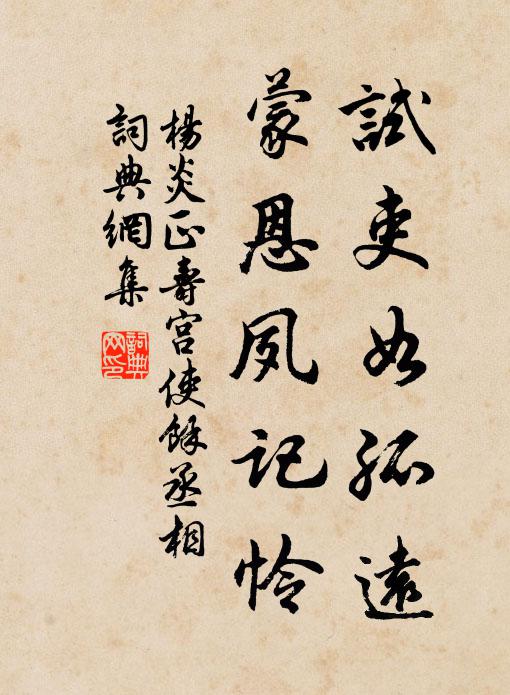 試吏如孤遠
蒙恩夙記憐
楊炎正壽宮使餘丞相
詞典網集
詞典
网印